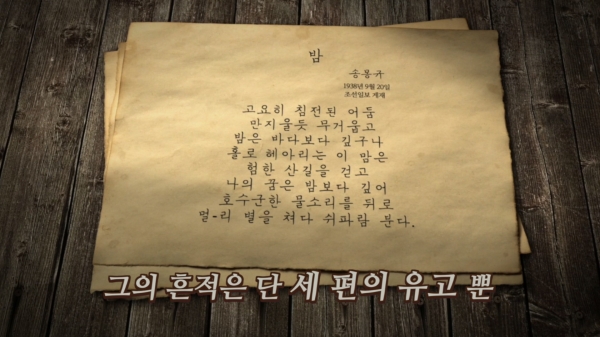 밤
송몽규
1938년 9월 20일
조선일보 게재
고요히 침전된 어둠
만지울듯 무거웁고
밤은 바다보다 깊구나
홀로 헤아리는 이 맘은
험한 산길을 걷고
나의 꿈은 밤보다 깊어
호수군한 물소리를 뒤로
멀-리 별을 쳐다 쉬파람 분다.
그의 흔적은 단 세 편의 유고 뿐